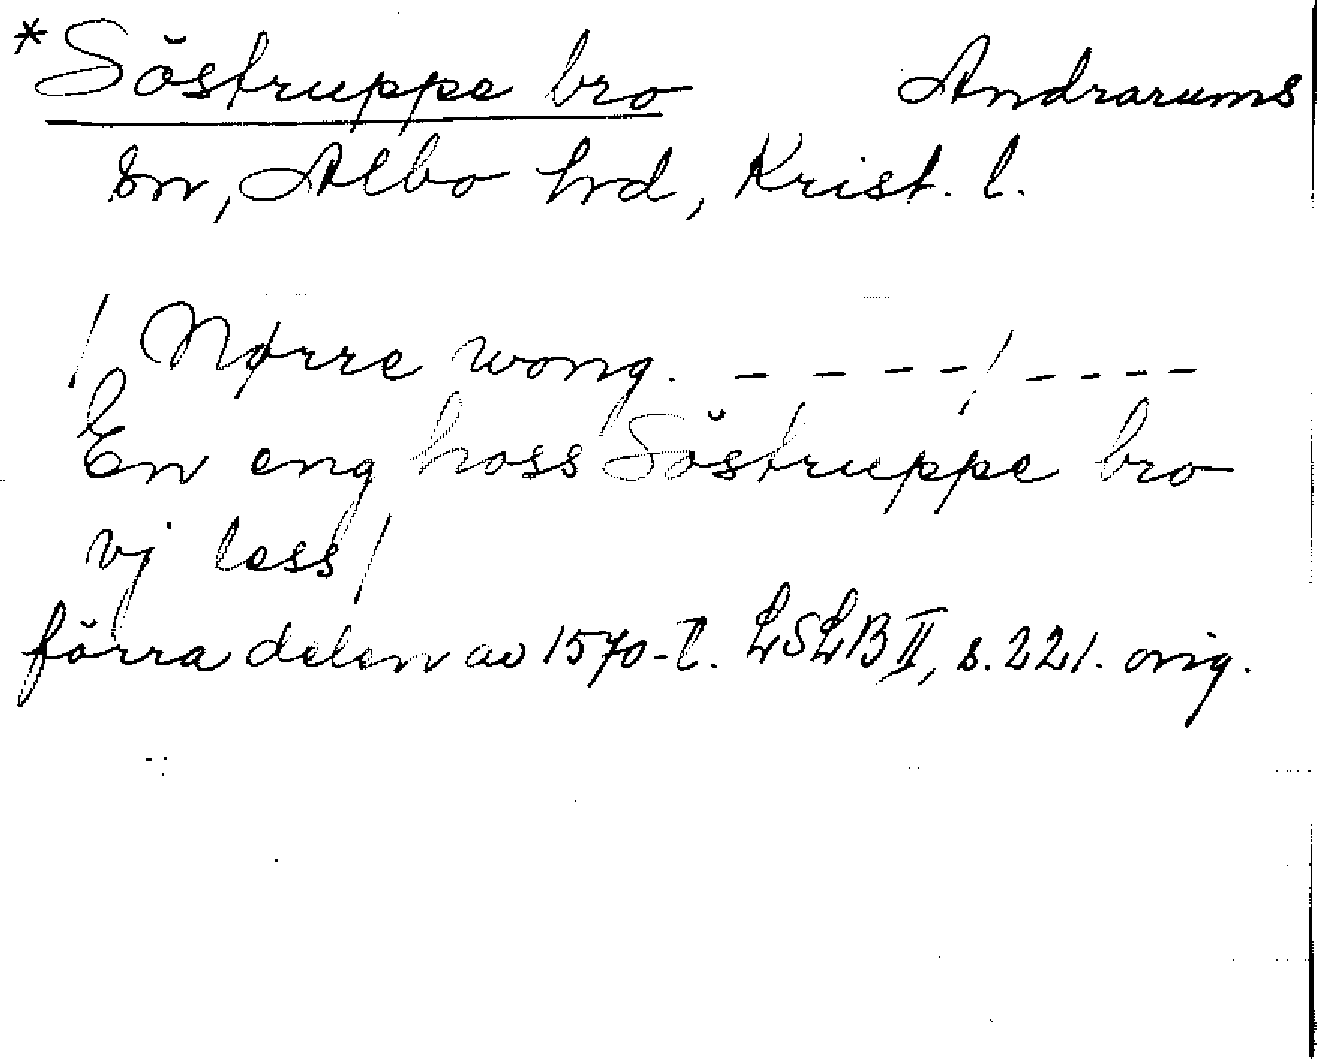 *Söstruppe bro Andrarums
sn, Albo hrd, Krist. l.
/ Nørre wong. - - - - / - - - -
En eng hoss Söstruppe bro
vj less /
förra delen av 1570-t. LSLB II, s. 221. orig.